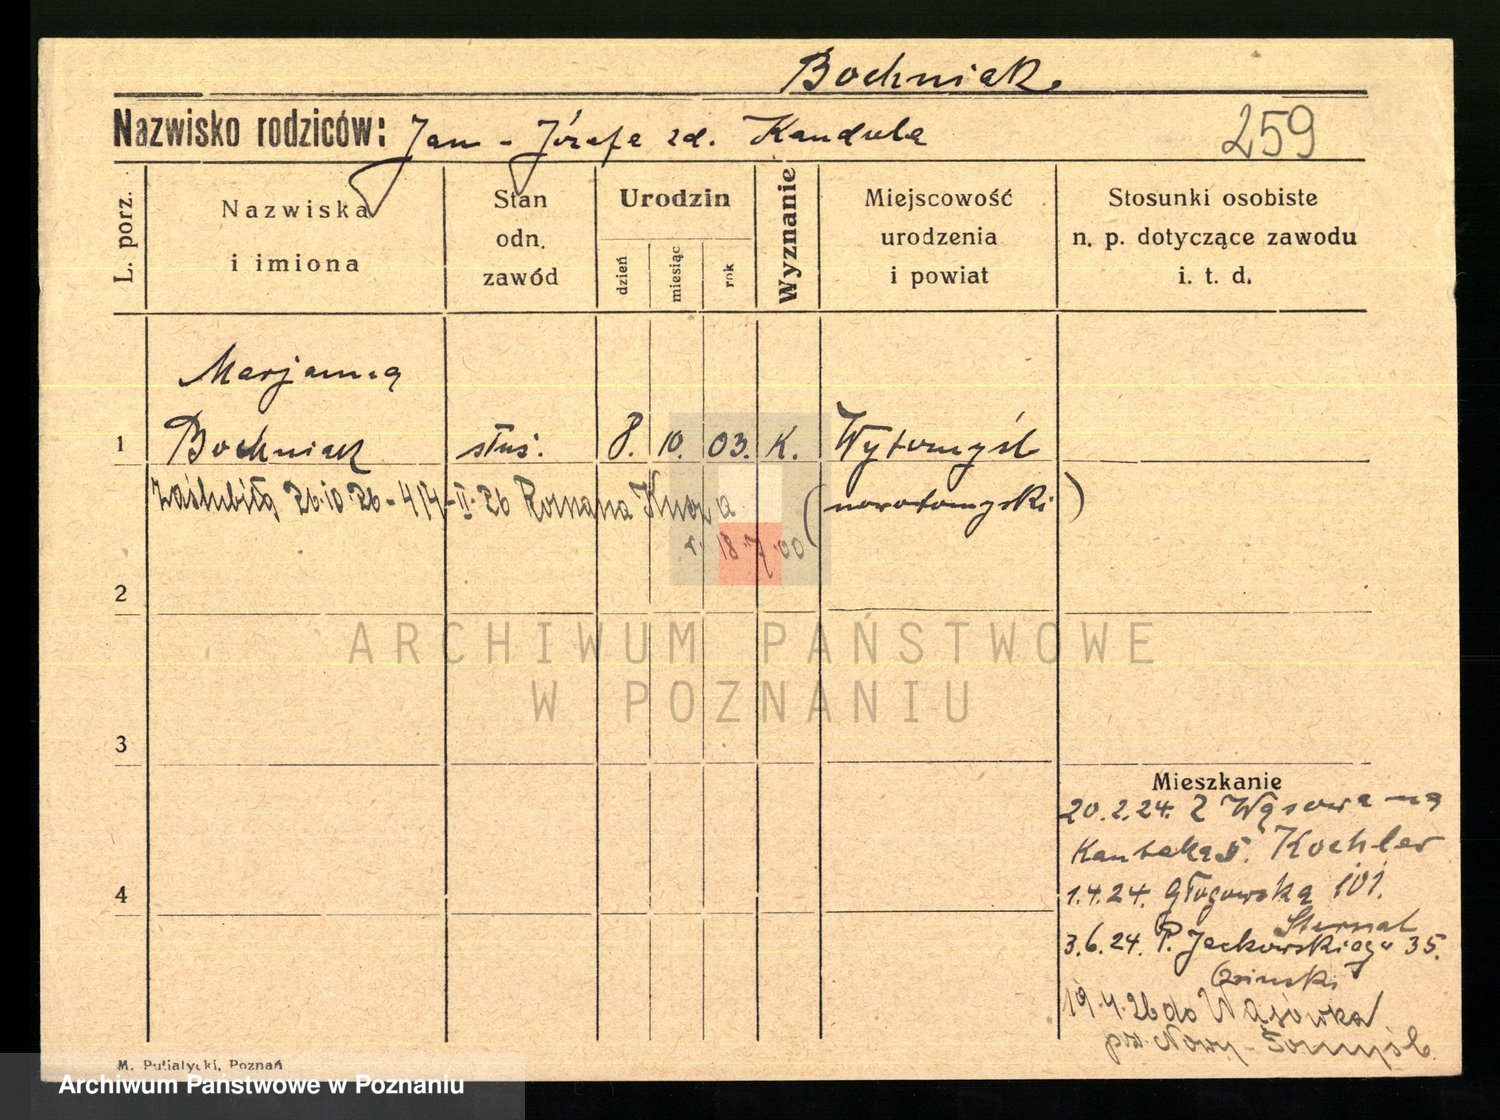 Bochniak
Nazwisko rodziców: Jan - Józefa zd. Kandula
259
L. porz.
Nazwiska
i imiona
Stan
odn.
zawód
Urodzin
dzień
miesiąc
rok
Wyznanie
Miejscowość
urodzenia
i powiat
Stosunki osobiste
n. p. dotyczące zawodu
i. t. d.
Marjanna
1 Bochniak służ. 8. 10. 03. K. Wytomyśl
zaślubiła 26.10.26 - 414-II-26 Romana
(nowotomyski)
r. 18.7.00
2
3
4
ARCHIWUM PAŃSTWOWE
W POZNANIU
Mieszkanie
20.2.24. Z Wąsowa na
Kantaka 5. Koehler
1.4.24. Głogowska 101.
Sternal
3.6.24. P. Jackowskiego 35.
19.4.26 do Wąsówka
pow. Nowy-Tomyśl
M. Putiatycki, Poznań
Archiwum Państwowe w Poznaniu